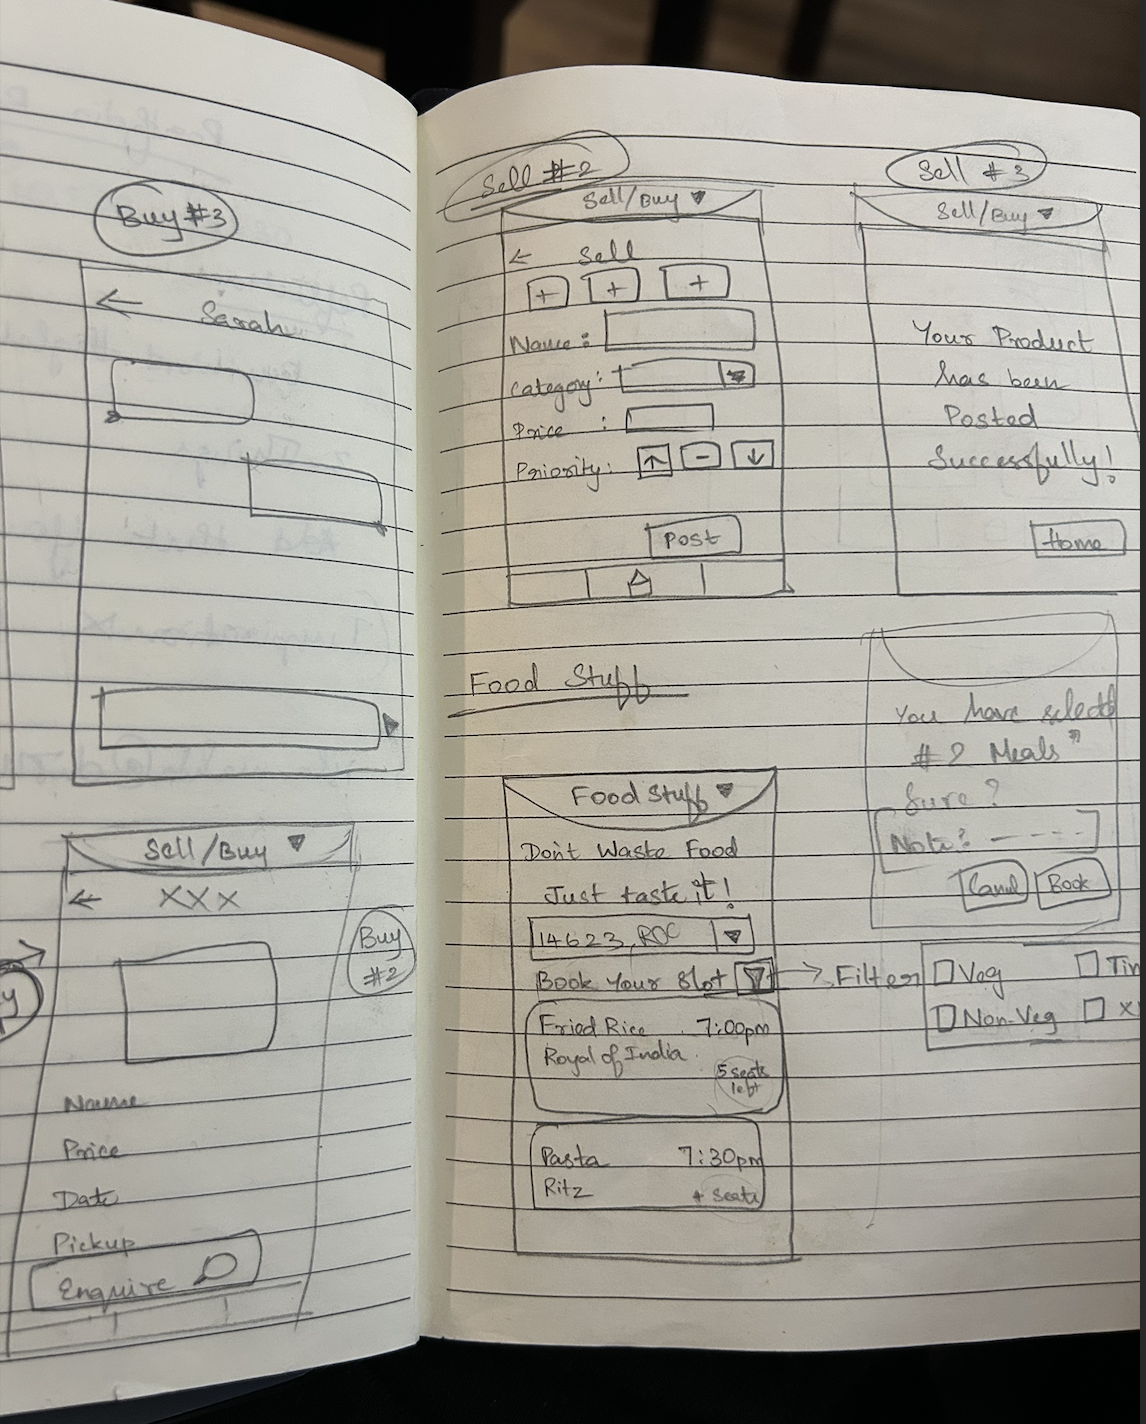 Buy #3
←
Sarah
Sell/Buy ▼
← XXX
Buy
#2
Name
Price
Date
Pickup
Enquire
Sell #2
Sell/Buy ▼
← Sell
+ + +
Name :
Category :
Price :
Priority : ↑ - ↓
Post
Sell #3
Sell/Buy ▼
Your Product
has been
Posted
Successfully!
Home
Food Stuff
You have selected
#2 Meals"
Sure?
Note:
Cancel Book
Food Stuff ▼
Don't Waste Food
Just taste it!
14623, ROC
Book Your Slot → Filter
Veg
Non-Veg
Fried Rice 7:00pm
Royal of India
5 seats
left
Pasta 7:30pm
Ritz seats